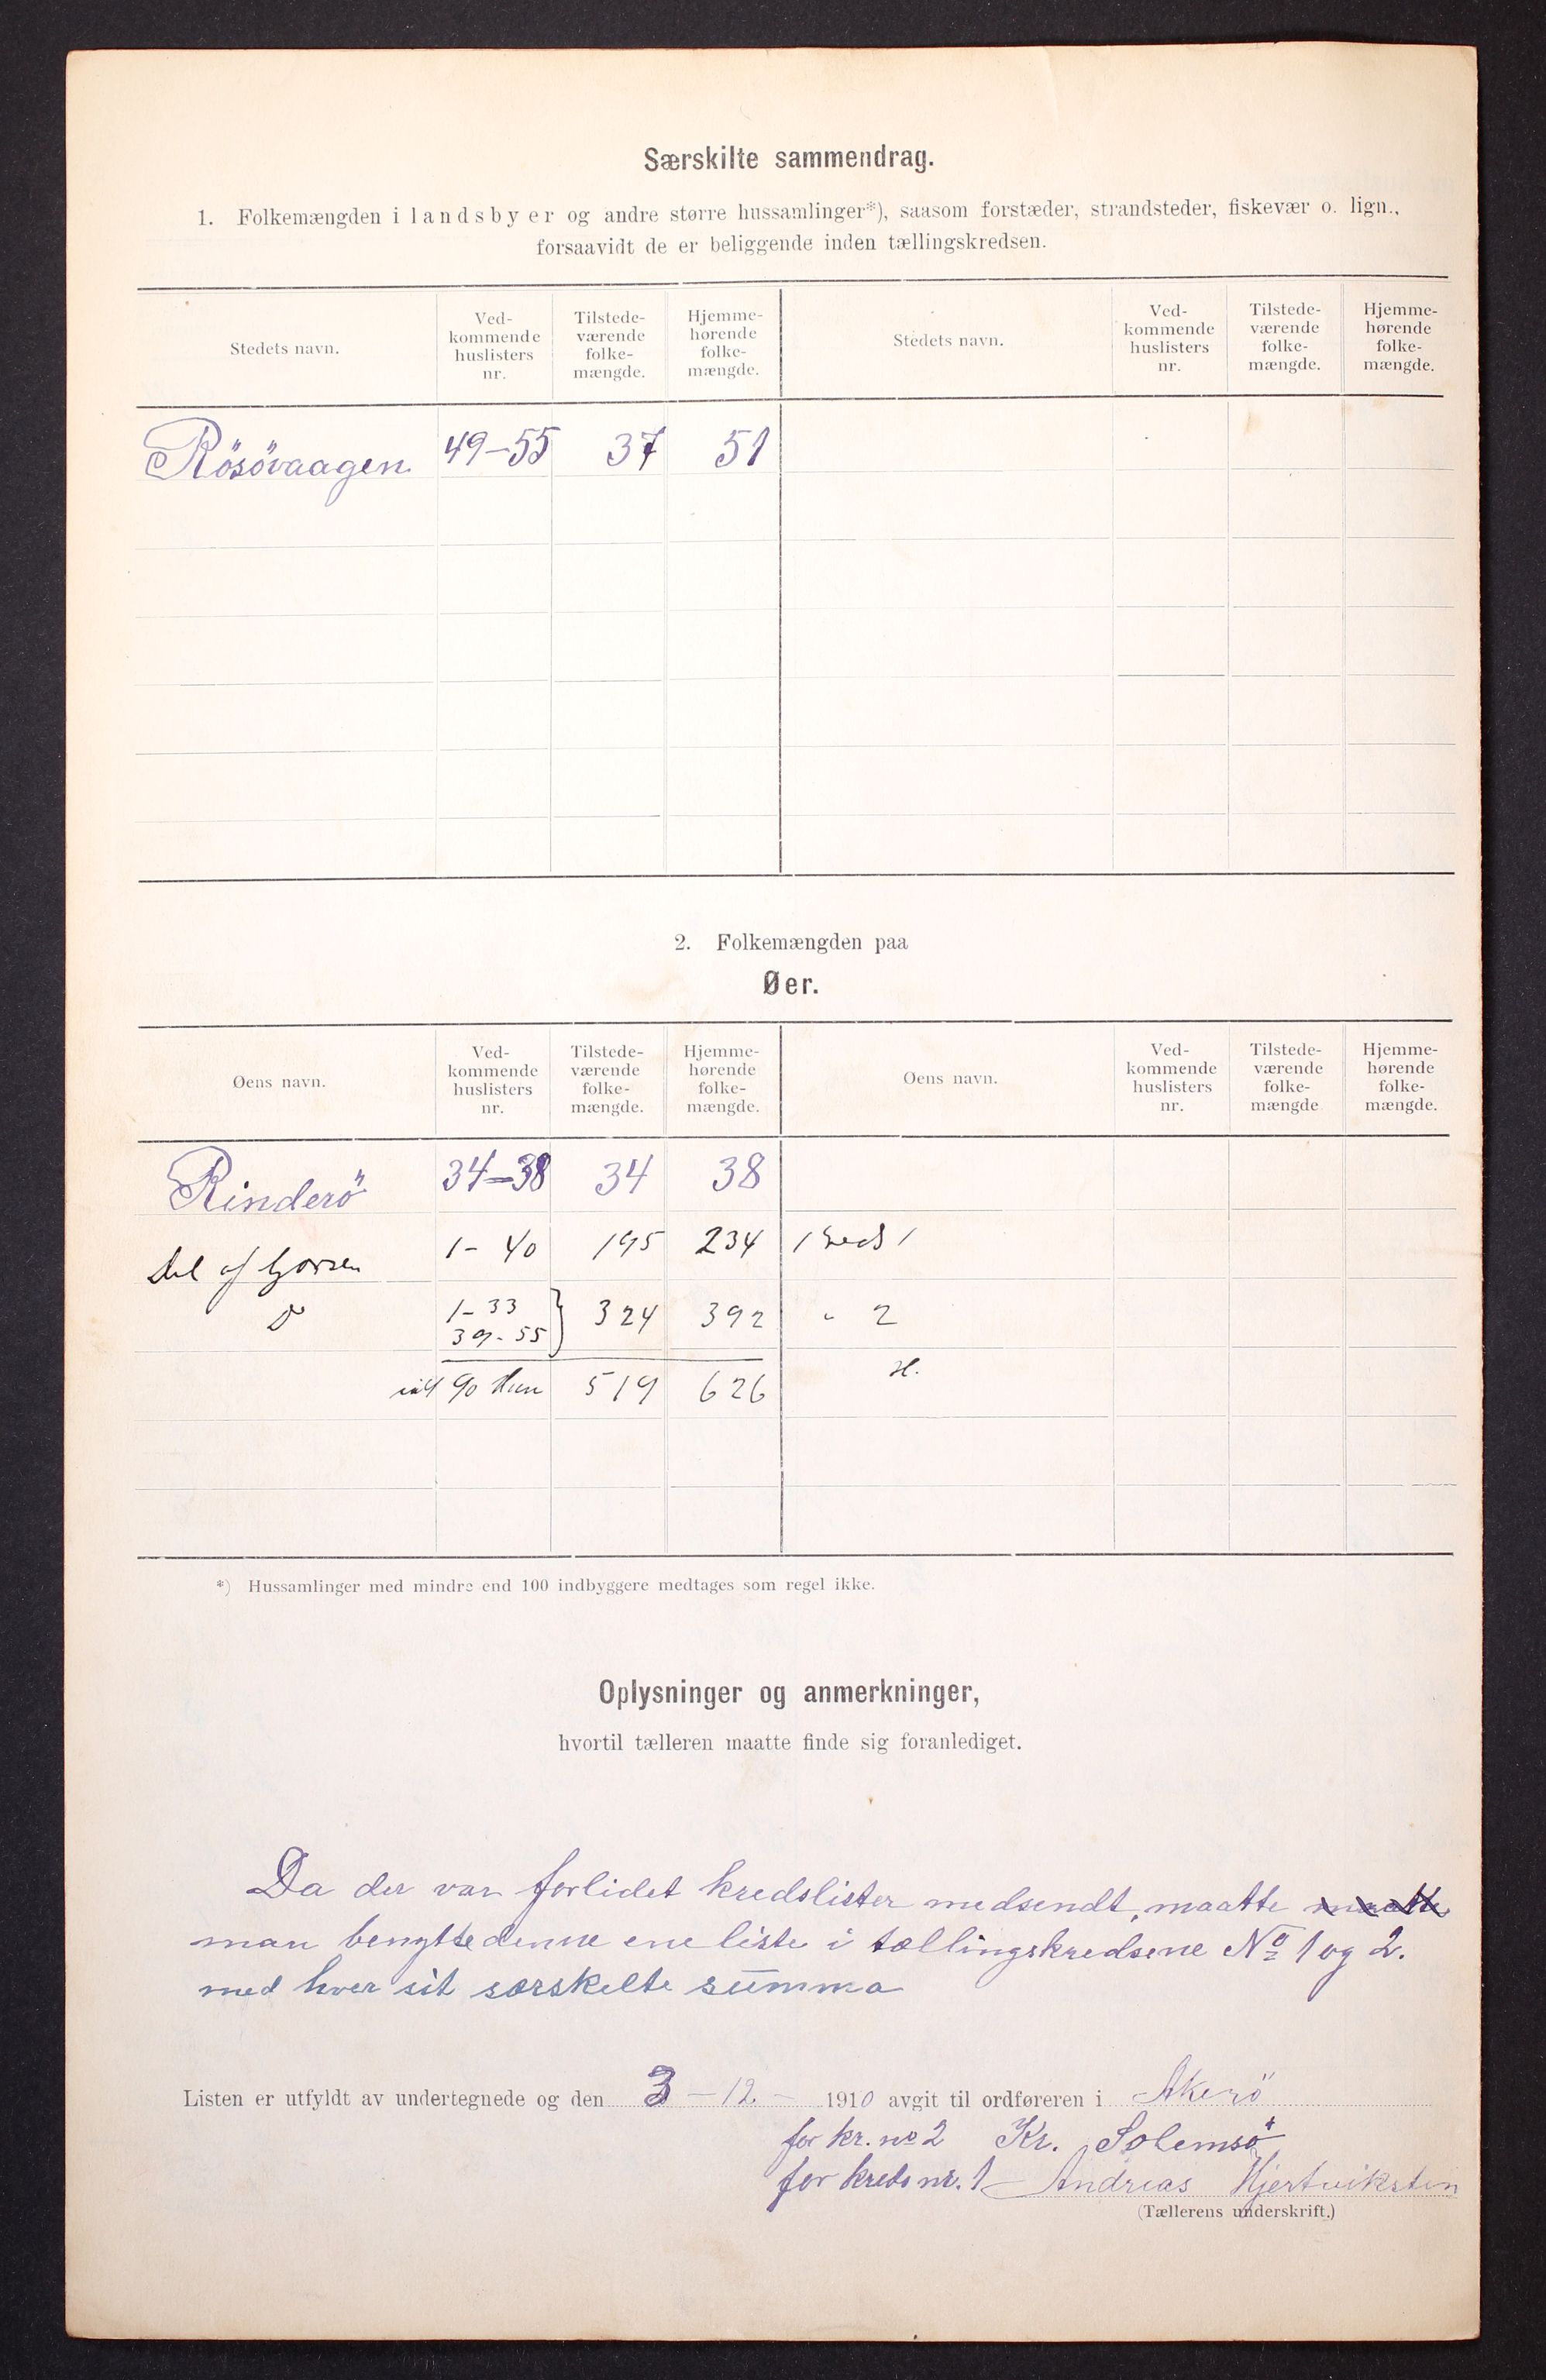 Særskilte sammendrag.
1. Folkemængden i landsbyer og andre større hussamlinger*), saasom forstæder, strandsteder, fiskevær o. lign.,
forsaavidt de er beliggende inden tællingskredsen.
Stedets navn.
Ved-
kommende
huslisters
nr.
Tilstede-
værende
folke-
mængde.
Hjemme-
hørende
folke-
mængde.
Stedets navn.
Ved-
kommende
huslisters
nr.
Tilstede-
værende
folke-
mængde.
Hjemme-
hørende
folke-
mængde.
Rösövaagen 49-55 37 51
2. Folkemængden paa
Øer.
Øens navn.
Ved-
kommende
huslisters
nr.
Tilstede-
værende
folke-
mængde.
Hjemme-
hørende
folke-
mængde.
Øens navn.
Ved-
kommende
huslisters
nr.
Tilstede-
værende
folke-
mængde
Hjemme-
hørende
folke-
mængde.
Rinderö 34-38 34 38
Del af 1-40 195 234
1-33
39-55 } 324 392 " 2
90 519 626 H.
*) Hussamlinger med mindre end 100 indbyggere medtages som regel ikke.
Oplysninger og anmerkninger,
hvortil tælleren maatte finde sig foranlediget.
Da der var forlidet kredslister medsendt, maatte maatte
man benytte denne ene liste i tællingskredsene No 1 og 2.
med hver sit særskelte summa
Listen er utfyldt av undertegnede og den 3-12- 1910 avgit til ordføreren i Akerö
for kr. no 2 Kr. Solemsö
for kreds nr. 1 Andreas Hjertviksten
(Tællerens underskrift.)